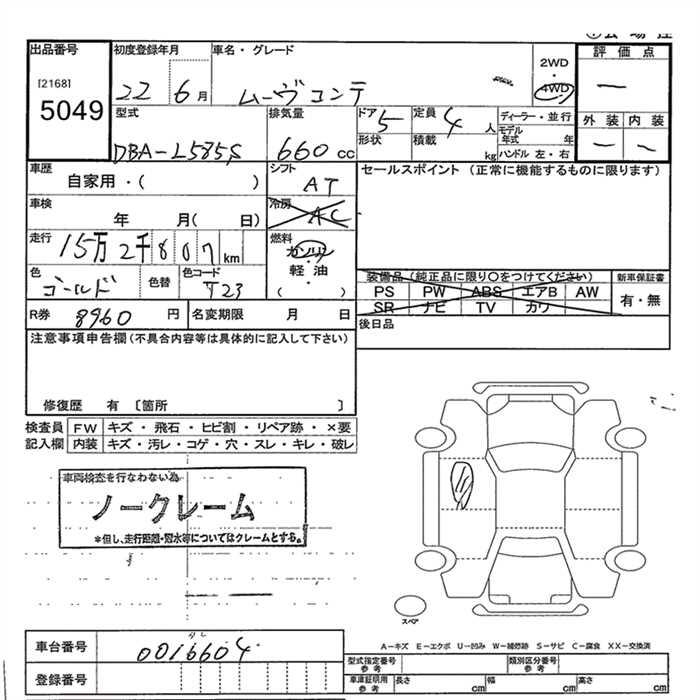 出品番号
[2168]
5049
初度登録年月
22 6月
車名・グレード
ムーヴコンテ
2WD
・
4WD
評価点
―
外装 内装
― ―
型式
DBA-L585S
排気量
660 cc
ドア 5
形状
定員 4 人
積載 kg
ディーラー・並行
モデル年式 年
ハンドル 左・右
車歴
自家用・( )
シフト
AT
セールスポイント (正常に機能するものに限ります)
車検
年 月( 日)
冷房
AC
走行
15万2千807km
燃料
ガソリン
軽・油
( )
色
ゴールド
色替
色コード
T23
装備品(純正品に限り○をつけてください)
PS PW ABS エアB AW
SR ナビ TV カワ
新車保証書
有・無
R券 8960 円
名変期限 月 日
後日品
注意事項申告欄(不具合内容等は具体的に記入して下さい)
修復歴 有 〔箇所 〕
検査員記入欄
FW キズ・飛石・ヒビ割・リペア跡・×要
内装 キズ・汚レ・コゲ・穴・スレ・キレ・破レ
車両検査を行なわない為
ノークレーム
*但し、走行距離・冠水等についてはクレームとする。
スペア
A-キズ E-エクボ U-凹み W-補修跡 S-サビ C-腐食 XX-交換済
車台番号
0016604
登録番号
型式指定番号
参考
類別区分番号
参考
車庫証明用
参考
長さ cm
幅 cm
高さ cm